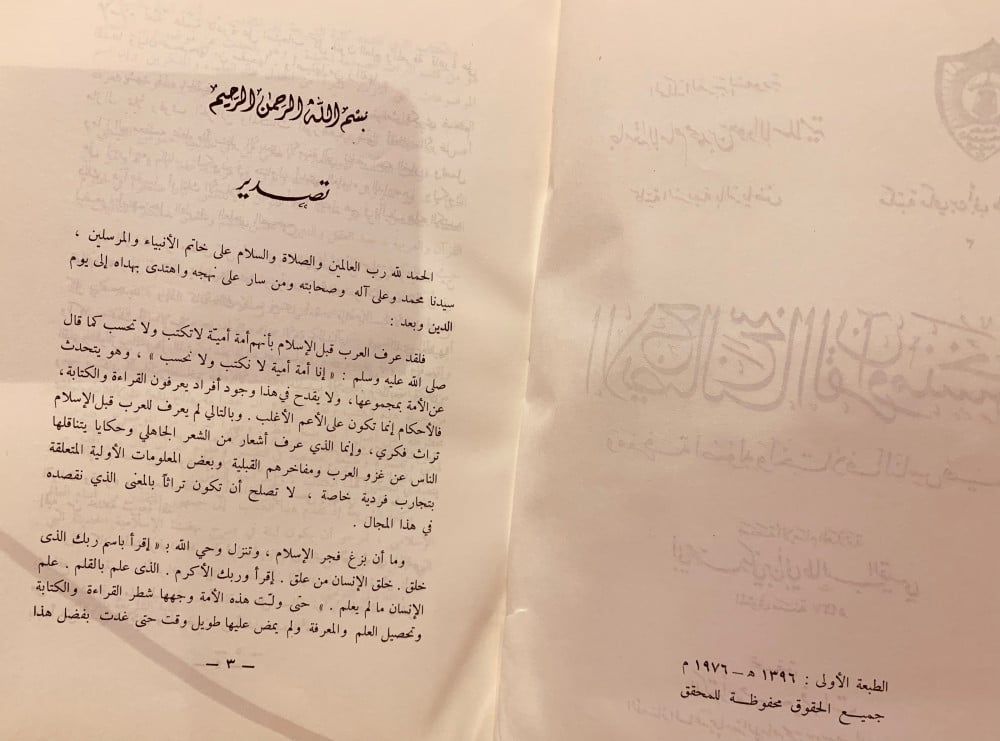 الطبعة الأولى : ١٣٩٦ هـ – ١٩٧٦ م
جميع الحقوق محفوظة للمحقق
بسم الله الرحمن الرحيم
تصدير
الحمد لله رب العالمين والصلاة والسلام على خاتم الأنبياء والمرسلين ،
سيدنا محمد وعلى آله وصحابته ومن سار على نهجه واهتدى بهداه إلى يوم
الدين وبعد :
فلقد عرف العرب قبل الإسلام بأنهم أمة أميّة لا تكتب ولا تحسب كما قال
صلى الله عليه وسلم : « إنا أمة أمية لا نكتب ولا نحسب » ، وهو يتحدث
عن الأمة بمجموعها، ولا يقدح في هذا وجود أفراد يعرفون القراءة والكتابة،
فالأحكام إنما تكون على الأعم الأغلب . وبالتالي لم يعرف للعرب قبل الإسلام
تراث فكري، وإنما الذي عرف أشعار من الشعر الجاهلي وحكايا يتناقلها
الناس عن غزو العرب ومفاخرهم القبلية وبعض المعلومات الأولية المتعلقة
بتجارب فردية خاصة ، لا تصلح أن تكون تراثاً بالمعنى الذي نقصده
في هذا المجال .
وما أن بزغ فجر الإسلام ، وتنزل وحي الله بـ « إقرأ باسم ربك الذى
خلق . خلق الإنسان من علق . إقرأ وربك الأكرم . الذى علم بالقلم . علم
الإنسان ما لم يعلم . » حتى ولّت هذه الأمة وجهها شطر القراءة والكتابة
وتحصيل العلم والمعرفة ولم يمض عليها طويل وقت حتى غدت بفضل هذا
– ٣ –